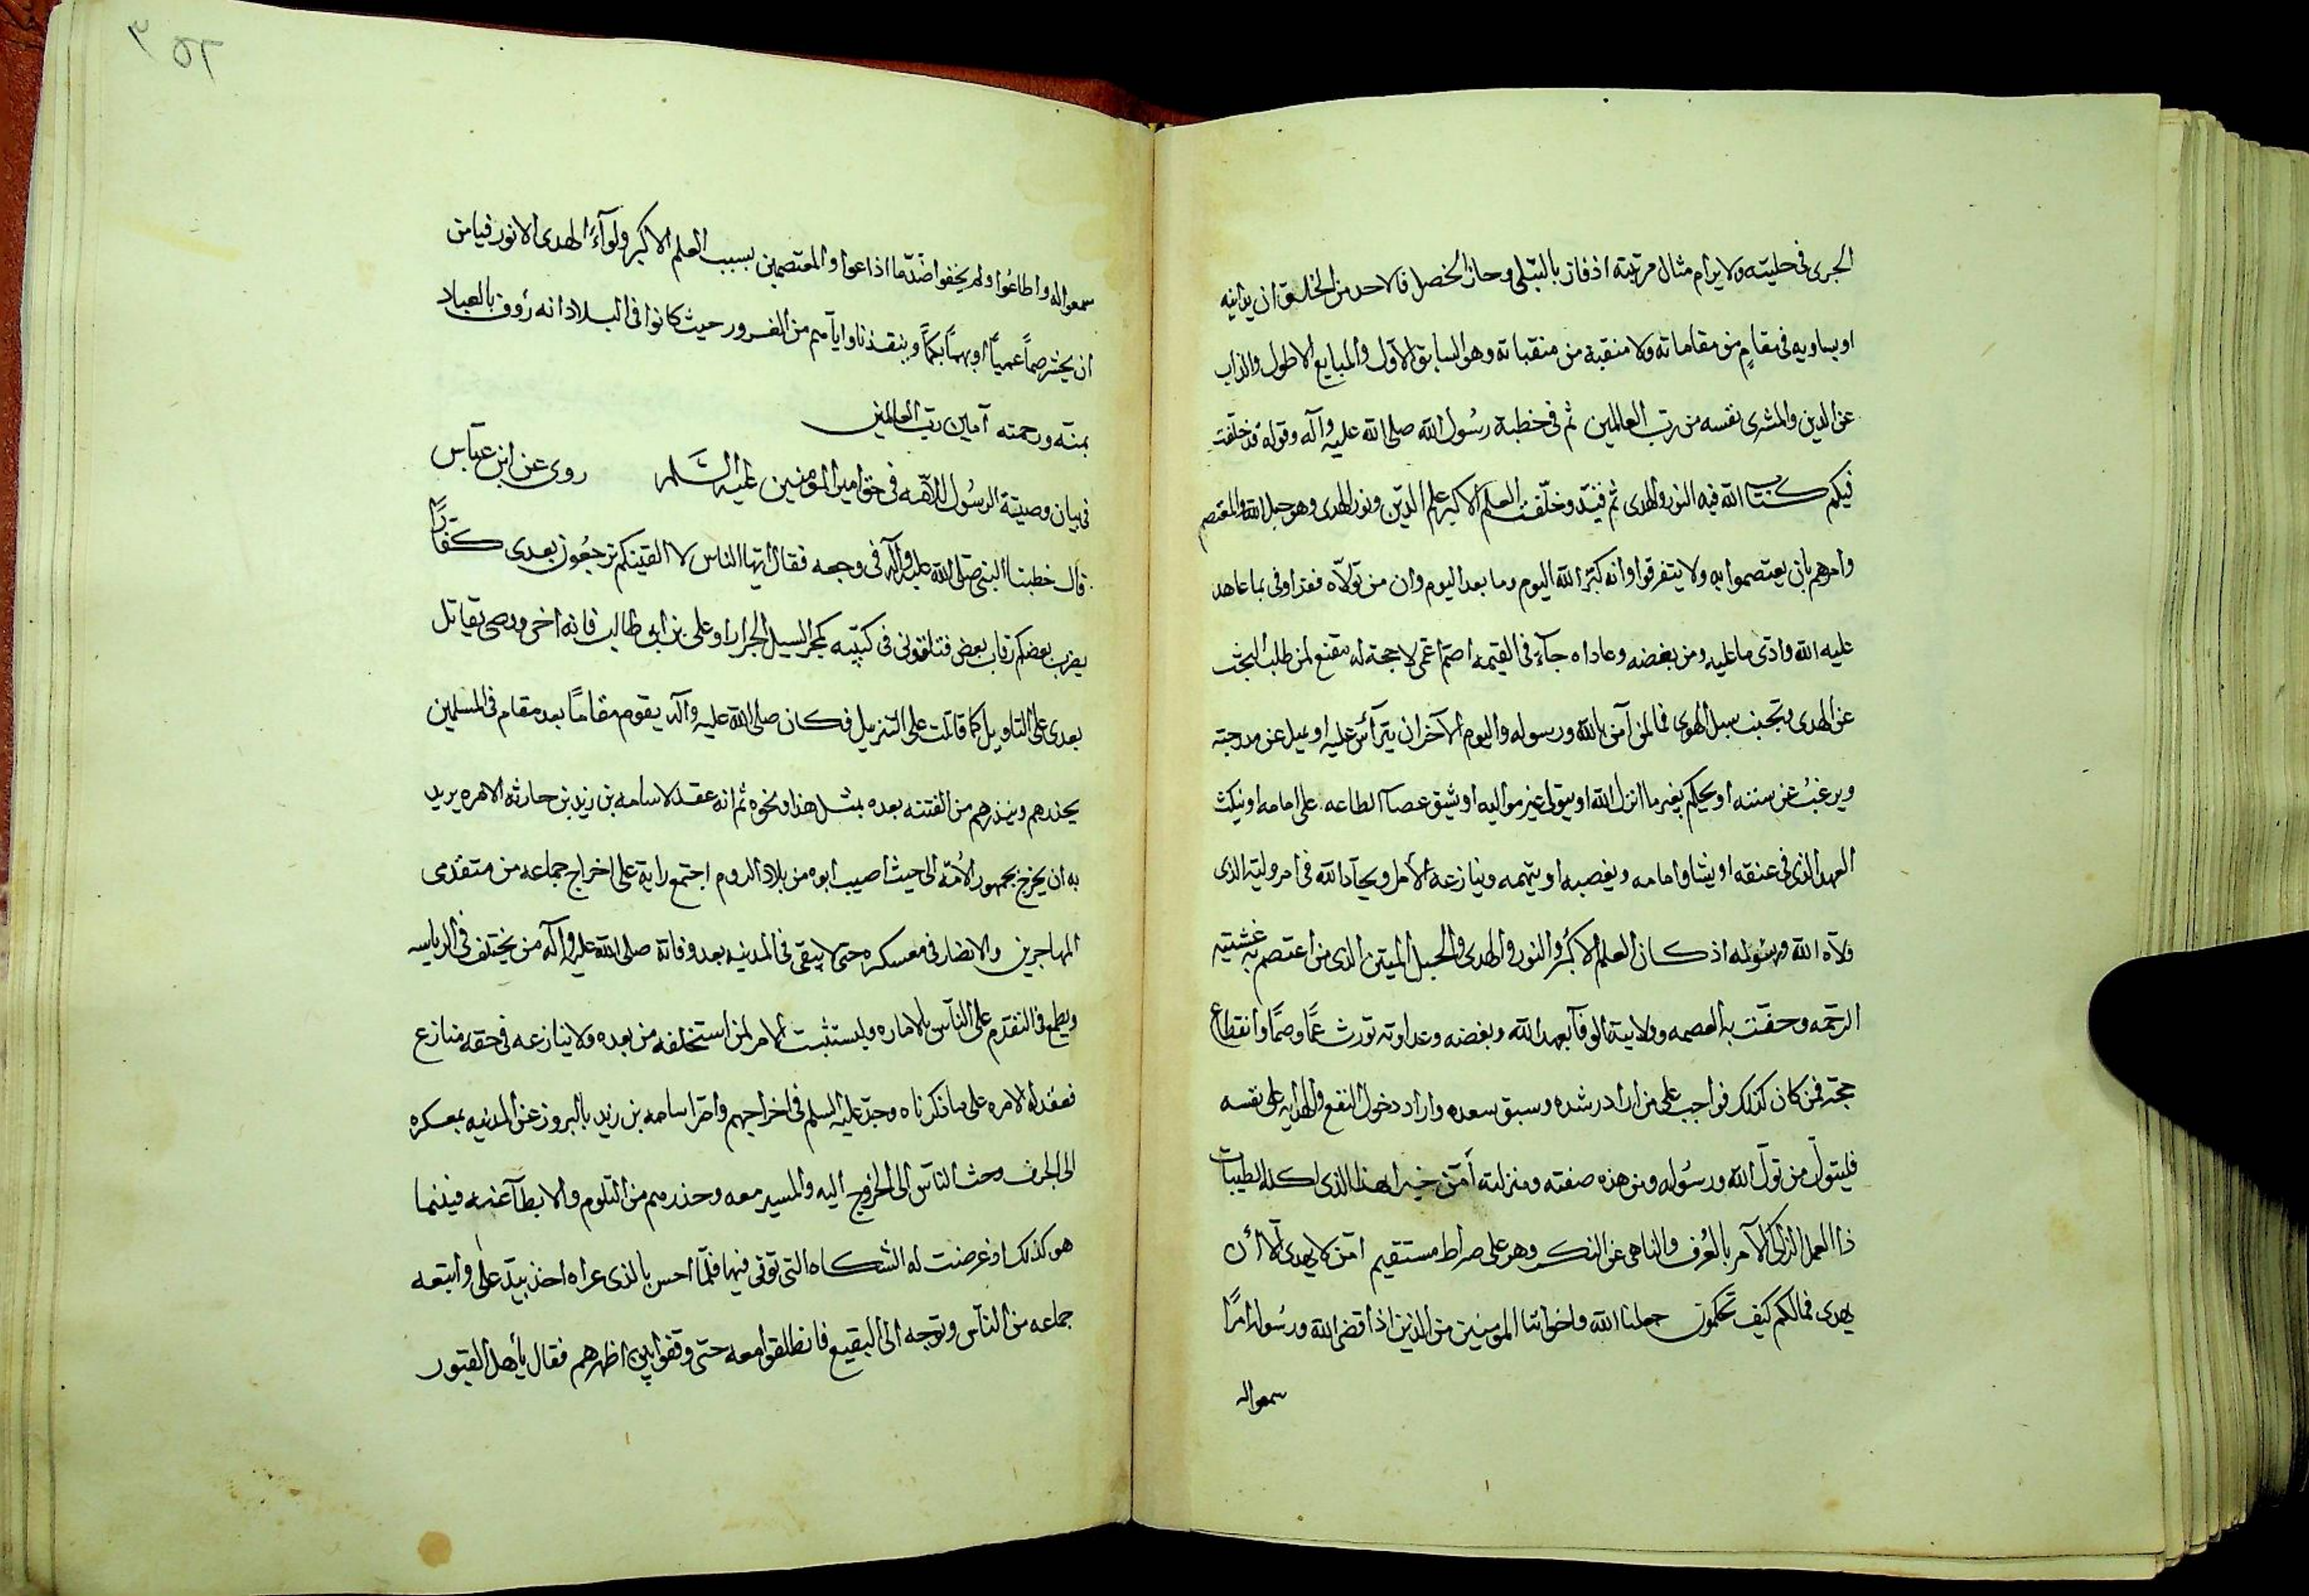 الجرى فى حليته ولا يرام مثال مرتبته اذ فاز بالتبتلى وحاز الخصل فالاحد من الخلق ان يدانيه
او يساويه فى مقامٍ من مقاماته ولا منقبة من منقباته وهو السابق الاوّل والمبايع الاطول والذاب
عن الدين والمشرى نفسه من ربّ العالمين ثم فى خطبة رسُول الله صلى الله عليه وآله وقوله قد خلّفت
فيكم كتاب الله فيه النور والهدى ثم وخلّفت العلم الاكبر علم الدّين ونور الهدى وهو حبل الله والمعتصم
وامرهم بان يعتصموا به ولا يتفرقوا وانه كنز الله اليوم وما بعد اليوم وان من تولّاه فقد اوفى بما عاهد
عليه الله وادّى ما عليه ومن بغضه وعاداه جآء فى القيمه اصمّ اعمى لا حجة له مقنع لمن طلب البحث
عن الهدى وتجنب سبل الهوى فما لمن آمن بالله ورسوله واليوم الآخر ان يترأس عليه او يميل عن مدرجته
ويرغبُ عن سننه او يحكم بغير ما انزل الله او يتولى غير مواليه او يشق عصا الطاعه على امامه او ينكث
العهد الذى فى عنقه او يشاق امامه ويغصبه او يتهمه وينازعه الامر ويحآد الله فى امر وليه الذى
ولّاه الله ورسُوله اذ كان العلم الاكبر والنور والهدى والحبل المتين الذى من اعتصم به غشيته
الرحمه وحقّت به العصمه وولايته الوفآ بعهد الله وبغضه وعداوته تورث عمًّا وصمًّا وانقطاع
حجّة فمن كان كذلك فواجب على من اراد رشده وسبق سعده واراد دخول النفع والهدايه على نفسه
فليتولّ من تولّ الله ورسُوله ومن هذه صفته ومنزلته أمّن خير اهذا الذى اكله الطيبات
ذا العمل الزاكى الآمر بالعُرف والناهى عن النكر وهو على صراط مستقيم امّن لا يهدى الّا أن
يهدى فمالكم كيف تحكمون جعلنا الله واخواننا المومنين من الذين اذا قضى الله ورسُوله امرًا
سمعوا له
سمعوا له واطاعُوا ولم يخفوا ضدّ ما اذاعوا والمعتصمين بسبب العلم الاكبر ولوآء الهدى الانور فيا من
ان يحشر صماً عمياً او بهماً بكماً وينقذنا وايآهم من الغرور حيث كانوا فى البلاد انه رؤوف بالعباد
بمنّه ورحمته آمين رب العالمين
فى بيان وصيّة الرسُول للامّه فى حق امير المومنين عليه السّلم روى عن ابن عبّاس
قال خطبنا النبى صلى الله عليه وآله فى وجعه فقال ايّها الناس لا القينكم ترجعُون بعدى كفّاراً
يضرب بعضكم رقاب بعض فتلقونى فى كتيبه كمجر السيل الجرار او على بن ابى طالب فانه اخى ووصى يقاتل
بعدى على التاويل كما قاتلت على التنزيل فكان صلى الله عليه وآله يقوم مقامًا بعد مقام فى المسلمين
يحذرهم وينذرهم من الفتنه بعده بمثل هذا ونحوه ثم انه عقد لاسامه بن زيد بن حارثه الامره يريد
به ان يخرج بجمهور الأمّه الى حيث اصيب ابوه من بلاد الروم اجتمع رايه على اخراج جماعه من متقدّمى
المهاجرين والانصار فى معسكره حتى لا يبقى فى المدينه بعد وفاته صلى الله عليه وآله من يختلف فى الرياسه
ويطمع فى التقدّم على النآس بالاماره وليستثبت الامر لمن استخلفه من بعده ولا ينازعه فى حقه منازع
فعقد له الامره على ما ذكرناه وجدّ عليه السلم فى اخراجهم وامر اسامه بن زيد بالبروز عن المدينه بمعسكره
الى الجرف وحث النآس الى الخروج اليه والمسير معه وحذرهم من التلوم والابطآ عنه فبينما
هو كذلك اذ عرضت له الشكاه التى توفى فيها فلمّا احس بالذى عراه اخذ بيد على واتبعه
جماعه من النآس وتوجه الى البقيع فانطلقوا معه حتى وقفوا بين اظهرهم فقال يأهل القبور